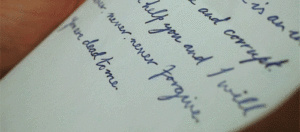 is an
and corrupt.
help you and I will
never, never, never forgive
You're dead to me.